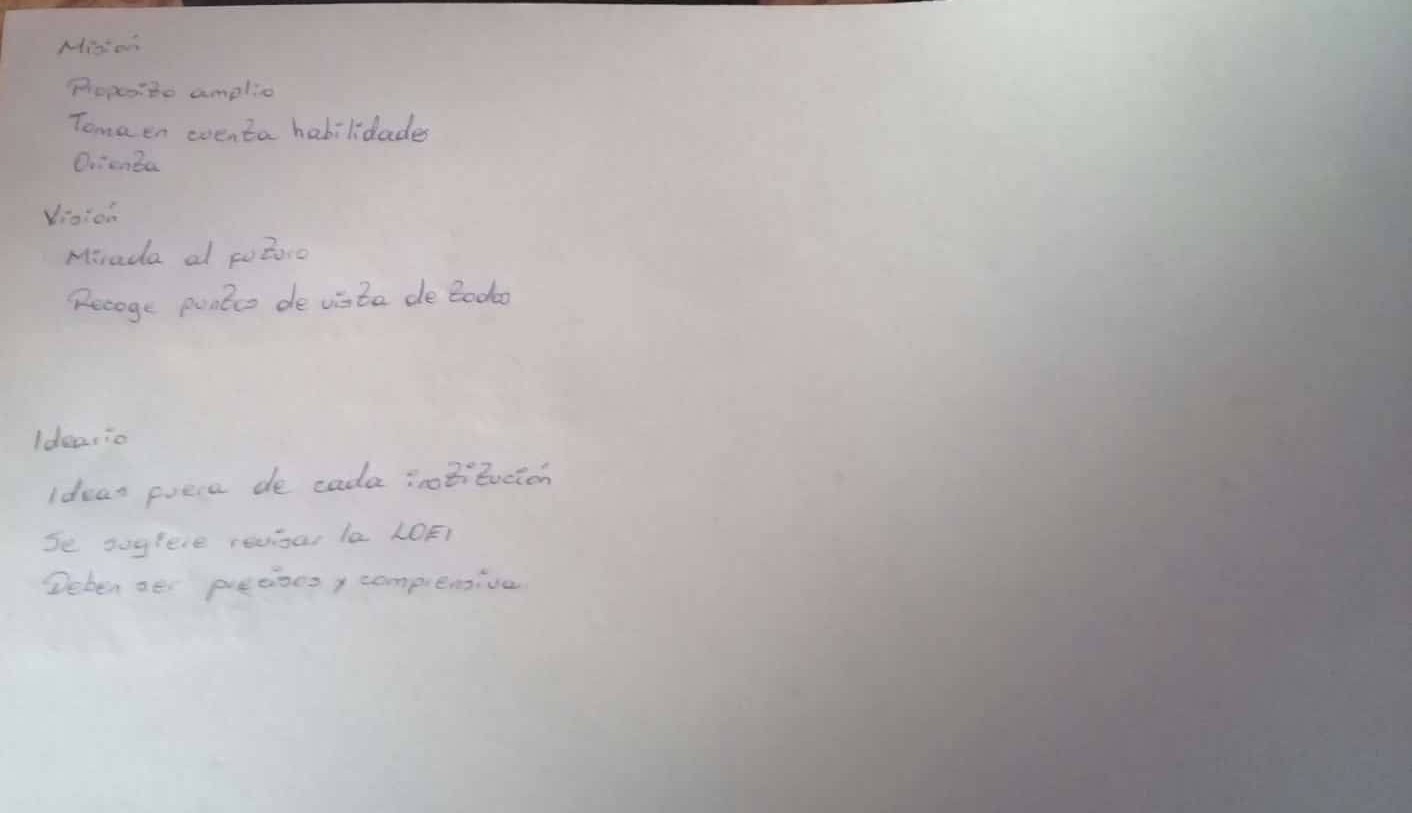 Misión
Proposito amplio
Toma en cuenta habilidades
Orienta
Visión
Mirada al futuro
Recoge puntos de vista de todos
Ideario
Ideas fuera de cada institución
Se sugiere revisar la LOEI
Deben ser precisos y comprensiva